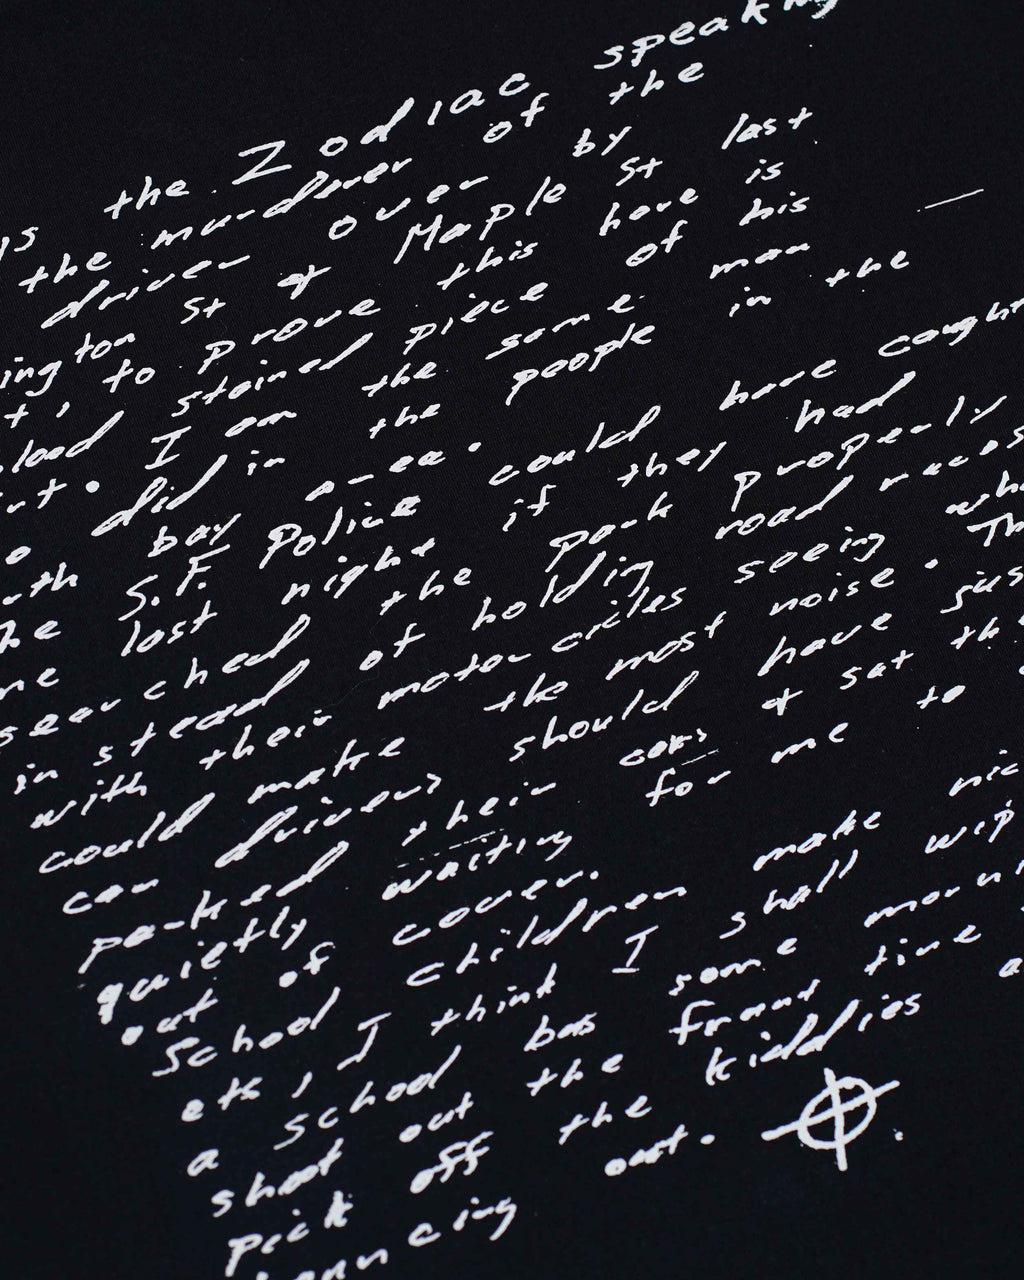 is the Zodiac speaking
the murderer of the
driver over by
ington St & Maple St last
t, to prove this here is
lood stained piece of his
irt. I am the same man
o did in the people in the
rth bay a-ea.
he S.F. Police could have caught
me last night if they had
searched the park properly
in stead of holding road races
with their motorcicles seeing who
could make the most noise. Th
car drivers should have jus
parked their cars & sat th
quietly waiting for me to
out of cover.
School children make nic
ets, I think I shall wip
a school bus some morni
shoot out the frunt tire
pick off the kiddies a
bouncing out.